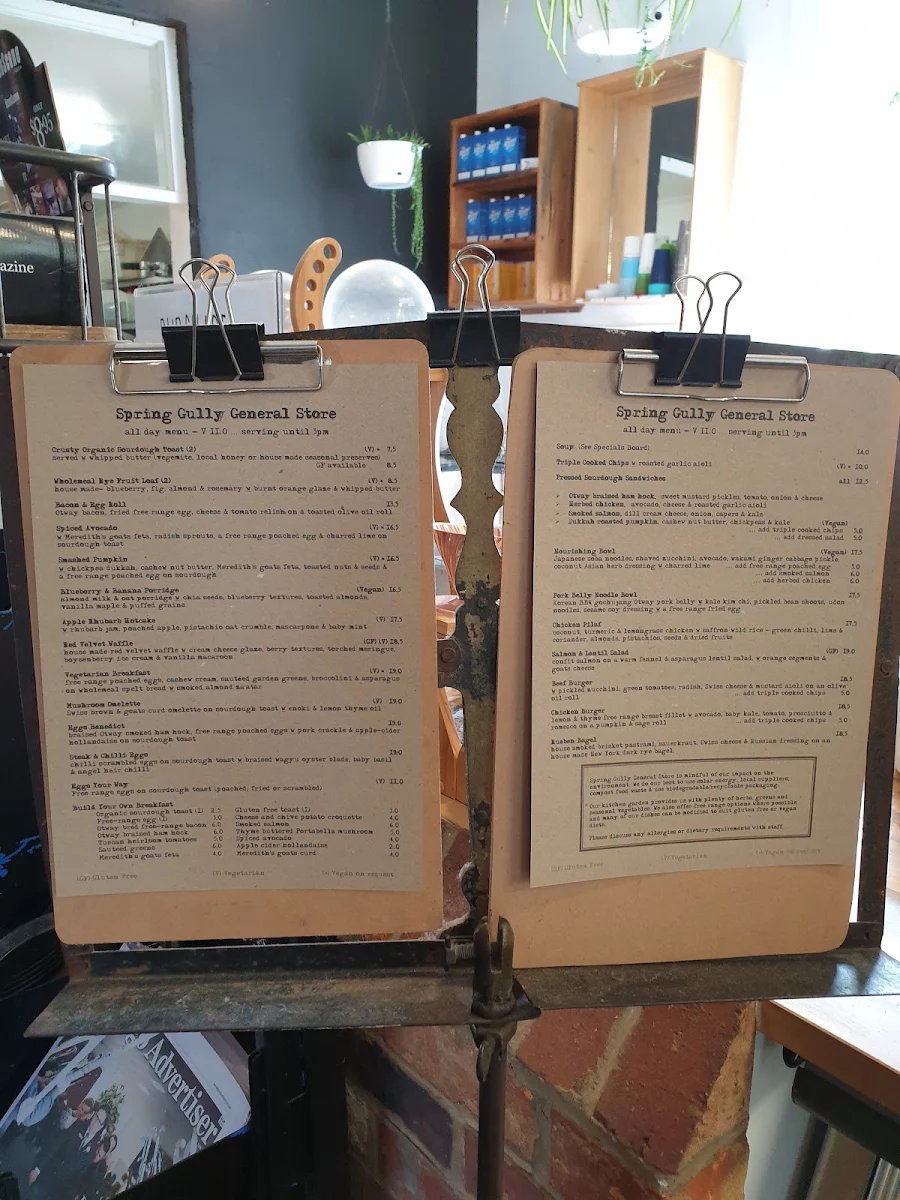 azine
Spring Gully General Store
all day menu - V 11.0 ... serving until 3pm
Crusty Organic Sourdough Toast (2) (V) * 7.5
served w whipped butter (vegemite, local honey or house made seasonal preserves)
GF available 8.5
Wholemeal Rye Fruit Loaf (2) (V) * 8.5
house made- blueberry, fig, almond & rosemary w burnt orange glaze & whipped butter
Bacon & Egg Roll 13.5
Otway bacon, fried free range egg, cheese & tomato relish on a toasted olive oil roll
Spiced Avocado (V) * 16.5
w Meredith's goats feta, radish sprouts, a free range poached egg & charred lime on
sourdough toast
Smashed Pumpkin (V) * 16.5
w chickpea dukkah, cashew nut butter, Meredith's goats feta, toasted nuts & seeds &
a free range poached egg on sourdough
Blueberry & Banana Porridge (Vegan) 16.5
almond milk & oat porridge w chia seeds, blueberry textures, toasted almonds,
vanilla maple & puffed grains
Apple Rhubarb Hotcake (V) 17.5
w rhubarb jam, poached apple, pistachio oat crumble, mascarpone & baby mint
Red Velvet Waffle (GF) (V) 18.5
house made red velvet waffle w cream cheese glaze, berry textures, torched meringue,
boysenberry ice cream & vanilla macaroon
Vegetarian Breakfast (V) * 19.0
free range poached eggs, cashew cream, sautéed garden greens, broccolini & asparagus
on wholemeal spelt bread w smoked almond za'atar
Mushroom Omelette (V) 19.0
Swiss brown & goats curd omelette on sourdough toast w enoki & lemon thyme oil
Eggs Benedict 19.0
braised Otway smoked ham hock, free range poached eggs w pork crackle & apple-cider
hollandaise on sourdough toast
Steak & Chilli Eggs 19.0
chilli scrambled eggs on sourdough toast w braised wagyu oyster blade, baby basil
& angel hair chilli
Eggs Your Way (V) 11.0
Free range eggs on sourdough toast (poached, fried or scrambled)
Build Your Own Breakfast
Organic sourdough toast (1) 2.5 Gluten free toast (1) 3.0
Free-range egg (1) 3.0 Cheese and chive potato croquette 4.0
Otway bred free-range bacon 6.0 Smoked salmon 6.0
Otway braised ham hock 6.0 Thyme buttered Portabella mushroom 5.0
Tuscan heirloom tomatoes 5.0 Spiced avocado 5.0
Sauteed greens 6.0 Apple cider hollandaise 2.0
Meredith's goats feta 4.0 Meredith's goats curd 4.0
(GF) Gluten Free (V) Vegetarian (*) Vegan on request
Spring Gully General Store
all day menu - V 11.0 ... serving until 3pm
Soup (See Specials Board) 14.0
Triple Cooked Chips w roasted garlic aioli (V) * 10.0
Pressed Sourdough Sandwiches all 12.5
Otway braised ham hock, sweet mustard pickles, tomato, onion & cheese
Herbed chicken, avocado, cheese & roasted garlic aioli
Smoked salmon, dill cream cheese, onion, capers & kale
Dukkah roasted pumpkin, cashew nut butter, chickpeas & kale (Vegan)
... add triple cooked chips 5.0
... add dressed salad 5.0
Nourishing Bowl (Vegan) 17.5
Japanese soba noodles, shaved zucchini, avocado, wakami ginger cabbage pickle,
coconut Asian herb dressing w charred lime ... add free range poached egg 3.0
... add smoked salmon 6.0
... add herbed chicken 6.0
Pork Belly Noodle Bowl 17.5
Korean BBQ gochujang Otway pork belly w kale kim chi, pickled bean shoots, udon
noodles, sesame soy dressing w a free range fried egg
Chicken Pilaf 17.5
coconut, turmeric & lemongrass chicken w saffron wild rice - green chilli, lime &
coriander, almonds, pistachios, seeds & dried fruits
Salmon & Lentil Salad (GF) 19.0
confit salmon on a warm fennel & asparagus lentil salad, w orange segments &
goats cheese
Beef Burger 18.5
w pickled zucchini, green tomatoes, radish, Swiss cheese & mustard aioli on an olive
oil roll ... add triple cooked chips 5.0
Chicken Burger 18.5
lemon & thyme free range breast fillet w avocado, baby kale, tomato, prosciutto &
romesco on a pumpkin & sage roll ... add triple cooked chips 5.0
Rueben Bagel 18.5
house smoked brisket pastrami, sauerkraut, Swiss cheese & Russian dressing on an
house made New York dark rye bagel
Spring Gully General Store is mindful of our impact on the
environment. We do our best to use solar energy, local suppliers,
compost food waste & use biodegradable/recyclable packages.
Our kitchen garden provides us with plenty of herbs, greens and
seasonal vegetables. We also offer free range options where possible
and many of our dishes can be modified to suit gluten free or vegan
diets.
Please discuss any allergies or dietary requirements with staff
(GF) Gluten Free (V) Vegetarian (*) Vegan on request
Advertiser